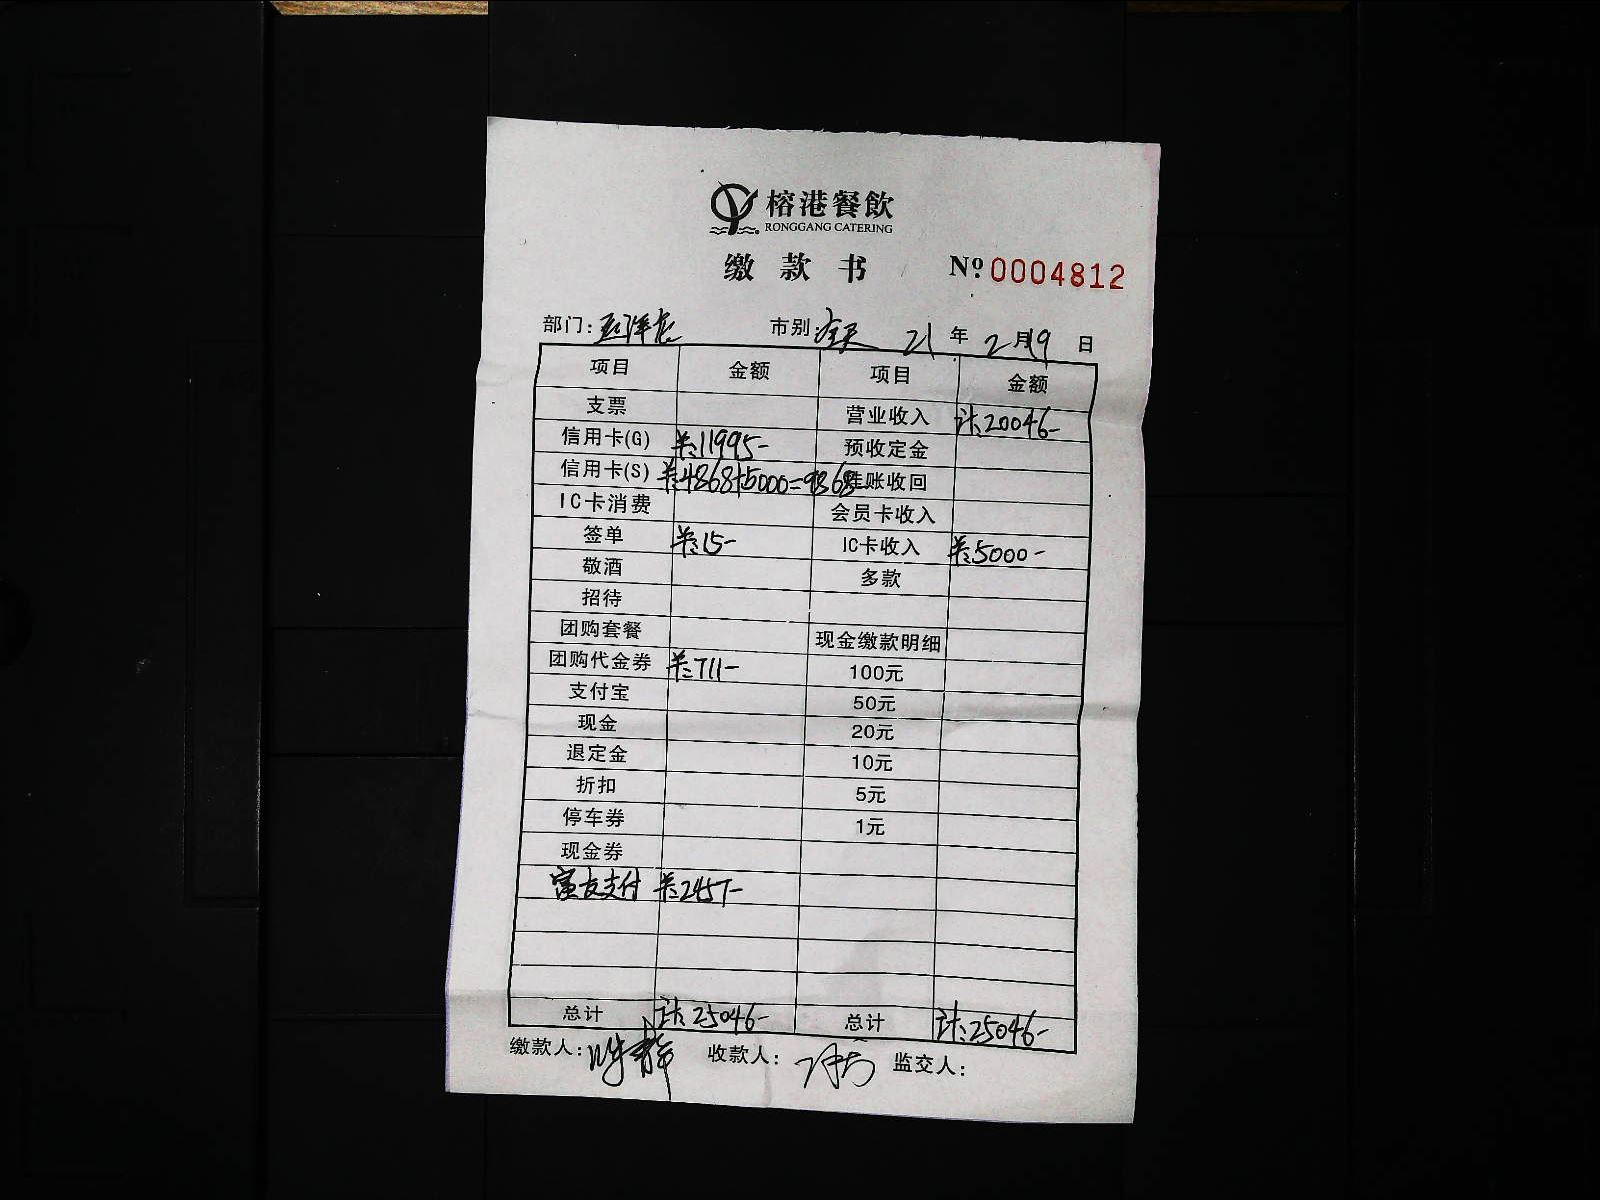 榕港餐飲
RONGGANG CATERING
缴款书 Nº 0004812
部门: 市别:全天 21年2月19日
项目 金额 项目 金额
支票 营业收入 计:20046-
信用卡(G) ¥:11995- 预收定金
信用卡(S) ¥:4868+5000=9868 挂账收回
IC卡消费 会员卡收入
签单 ¥:15- IC卡收入 ¥:5000-
敬酒 多款
招待
团购套餐 现金缴款明细
团购代金券 ¥:711- 100元
支付宝 50元
现金 20元
退定金 10元
折扣 5元
停车券 1元
现金券
富友支付 ¥:2457-
总计 计:25046- 总计 计:25046-
缴款人: 收款人: 监交人: